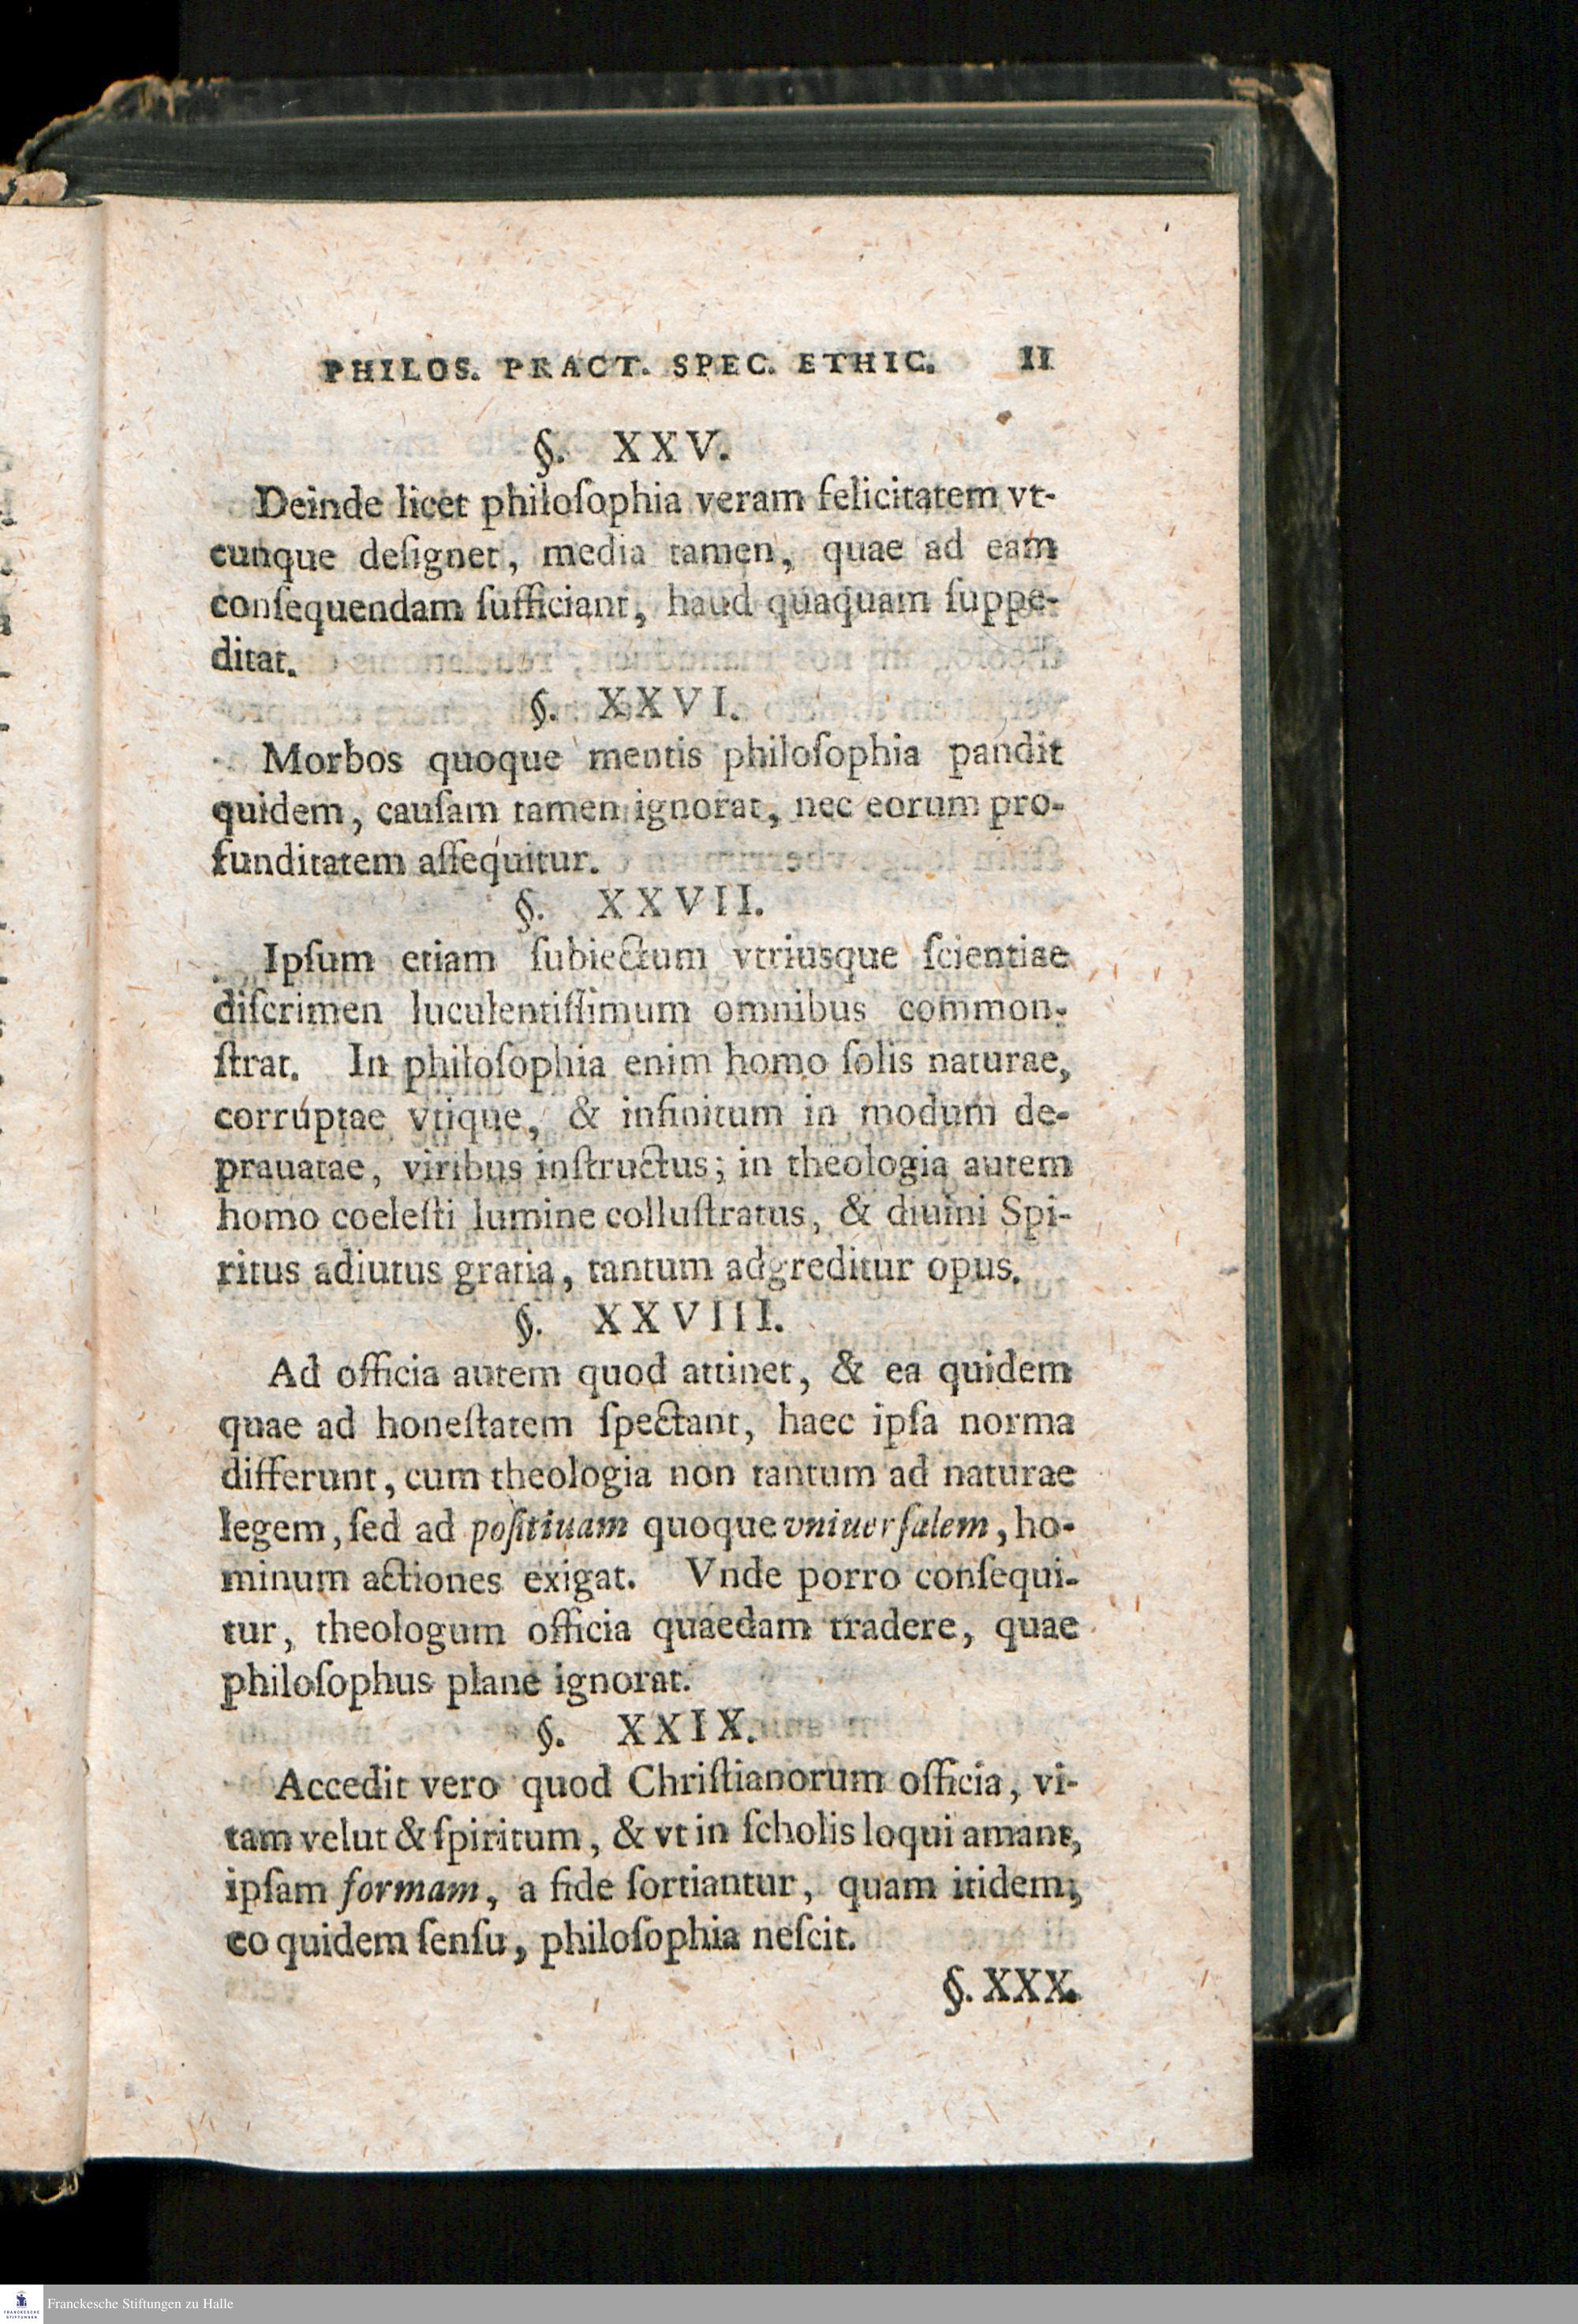 PHILOS. PRACT. SPEC. ETHIC. II
§. XXV.
Deinde licet philoſophia veram felicitatem vt-
cunque deſignet, media tamen, quae ad eam
conſequendam ſufficiant, haud quaquam ſuppe-
ditat.
§. XXVI.
Morbos quoque mentis philoſophia pandit
quidem, cauſam tamen ignorat, nec eorum pro-
funditatem aſſequitur.
§. XXVII.
Ipſum etiam ſubiectum vtriusque ſcientiae
diſcrimen luculentiſſimum omnibus common-
ſtrat. In philoſophia enim homo ſolis naturae,
corruptae vtique, & infinitum in modum de-
prauatae, viribus inſtructus; in theologia autem
homo coeleſti lumine colluſtratus, & diuini Spi-
ritus adiutus gratia, tantum adgreditur opus.
§. XXVIII.
Ad officia autem quod attinet, & ea quidem
quae ad honeſtatem ſpectant, haec ipſa norma
differunt, cum theologia non tantum ad naturae
legem, ſed ad poſitiuam quoque vniuerſalem, ho-
minum actiones exigat. Vnde porro conſequi-
tur, theologum officia quaedam tradere, quae
philoſophus plane ignorat.
§. XXIX.
Accedit vero quod Chriſtianorum officia, vi-
tam velut & ſpiritum, & vt in ſcholis loqui amant,
ipſam formam, a fide ſortiantur, quam itidem,
eo quidem ſenſu, philoſophia neſcit.
§. XXX.
FRANCKESCHE
STIFTUNGEN
Franckesche Stiftungen zu Halle